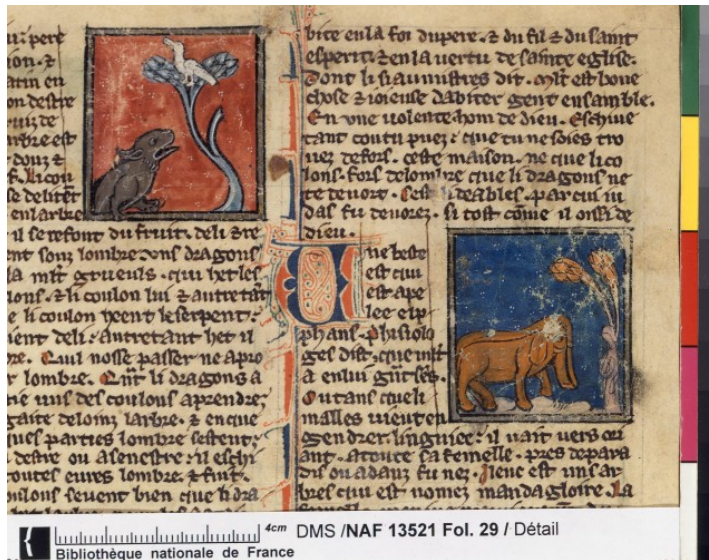 pere
ion. ⁊
atin en
on destre
uiz de
arbre est
douz ⁊
f. li cou
se delitent
en larbre
il se refont du fruit. deli ⁊ re
lombre. dragons
la mlt crueuls. qui het les
lons. ⁊ li coulon lui ⁊ autretāt
e li coulon heent le serpent.
ient deli. autretant het il
re. Quil nosse passer ne apro
r lombre. Qn̄t li dragons a
ne uns des coulons aprendre.
gaite deloinz larbre. ⁊ en que
ques parties lombre sestent.
destre ou asenestre. il eschi
toutes eures lombre. ⁊ fuit.
oulons seuent bien que li dra
bite en la foi du pere. ⁊ du fil ⁊ du saint
esperit. ⁊ en la uertu de sainte eglise.
Dont li saumistres dit. mlt est bone
chose ⁊ ioieuse dabiter gent ensamble.
En une uolente. hom de dieu. Eschiue
tant con tu puez. que tu ne soies tro
uez defors. ceste maison. ne que li co
lons. fors de lombre que li dragons ne
te deuore. cest li deables. par cui iu
das fu deuorez. si tost come il oissi de
dieu.
Une beste
est qui
est ape
lee elp
phans. phisiolo
ges dist, que mlt
a en lui
Ou tans que li
malles uient en
gendrer. il uait uers ori
ant. atoute sa femelle. pres de para
dis ou adanz fu nez. Ileuc est uns ar
bres qui est nomez mandagloire. la
4cm DMS /NAF 13521 Fol. 29 / Détail
Bibliothèque nationale de France